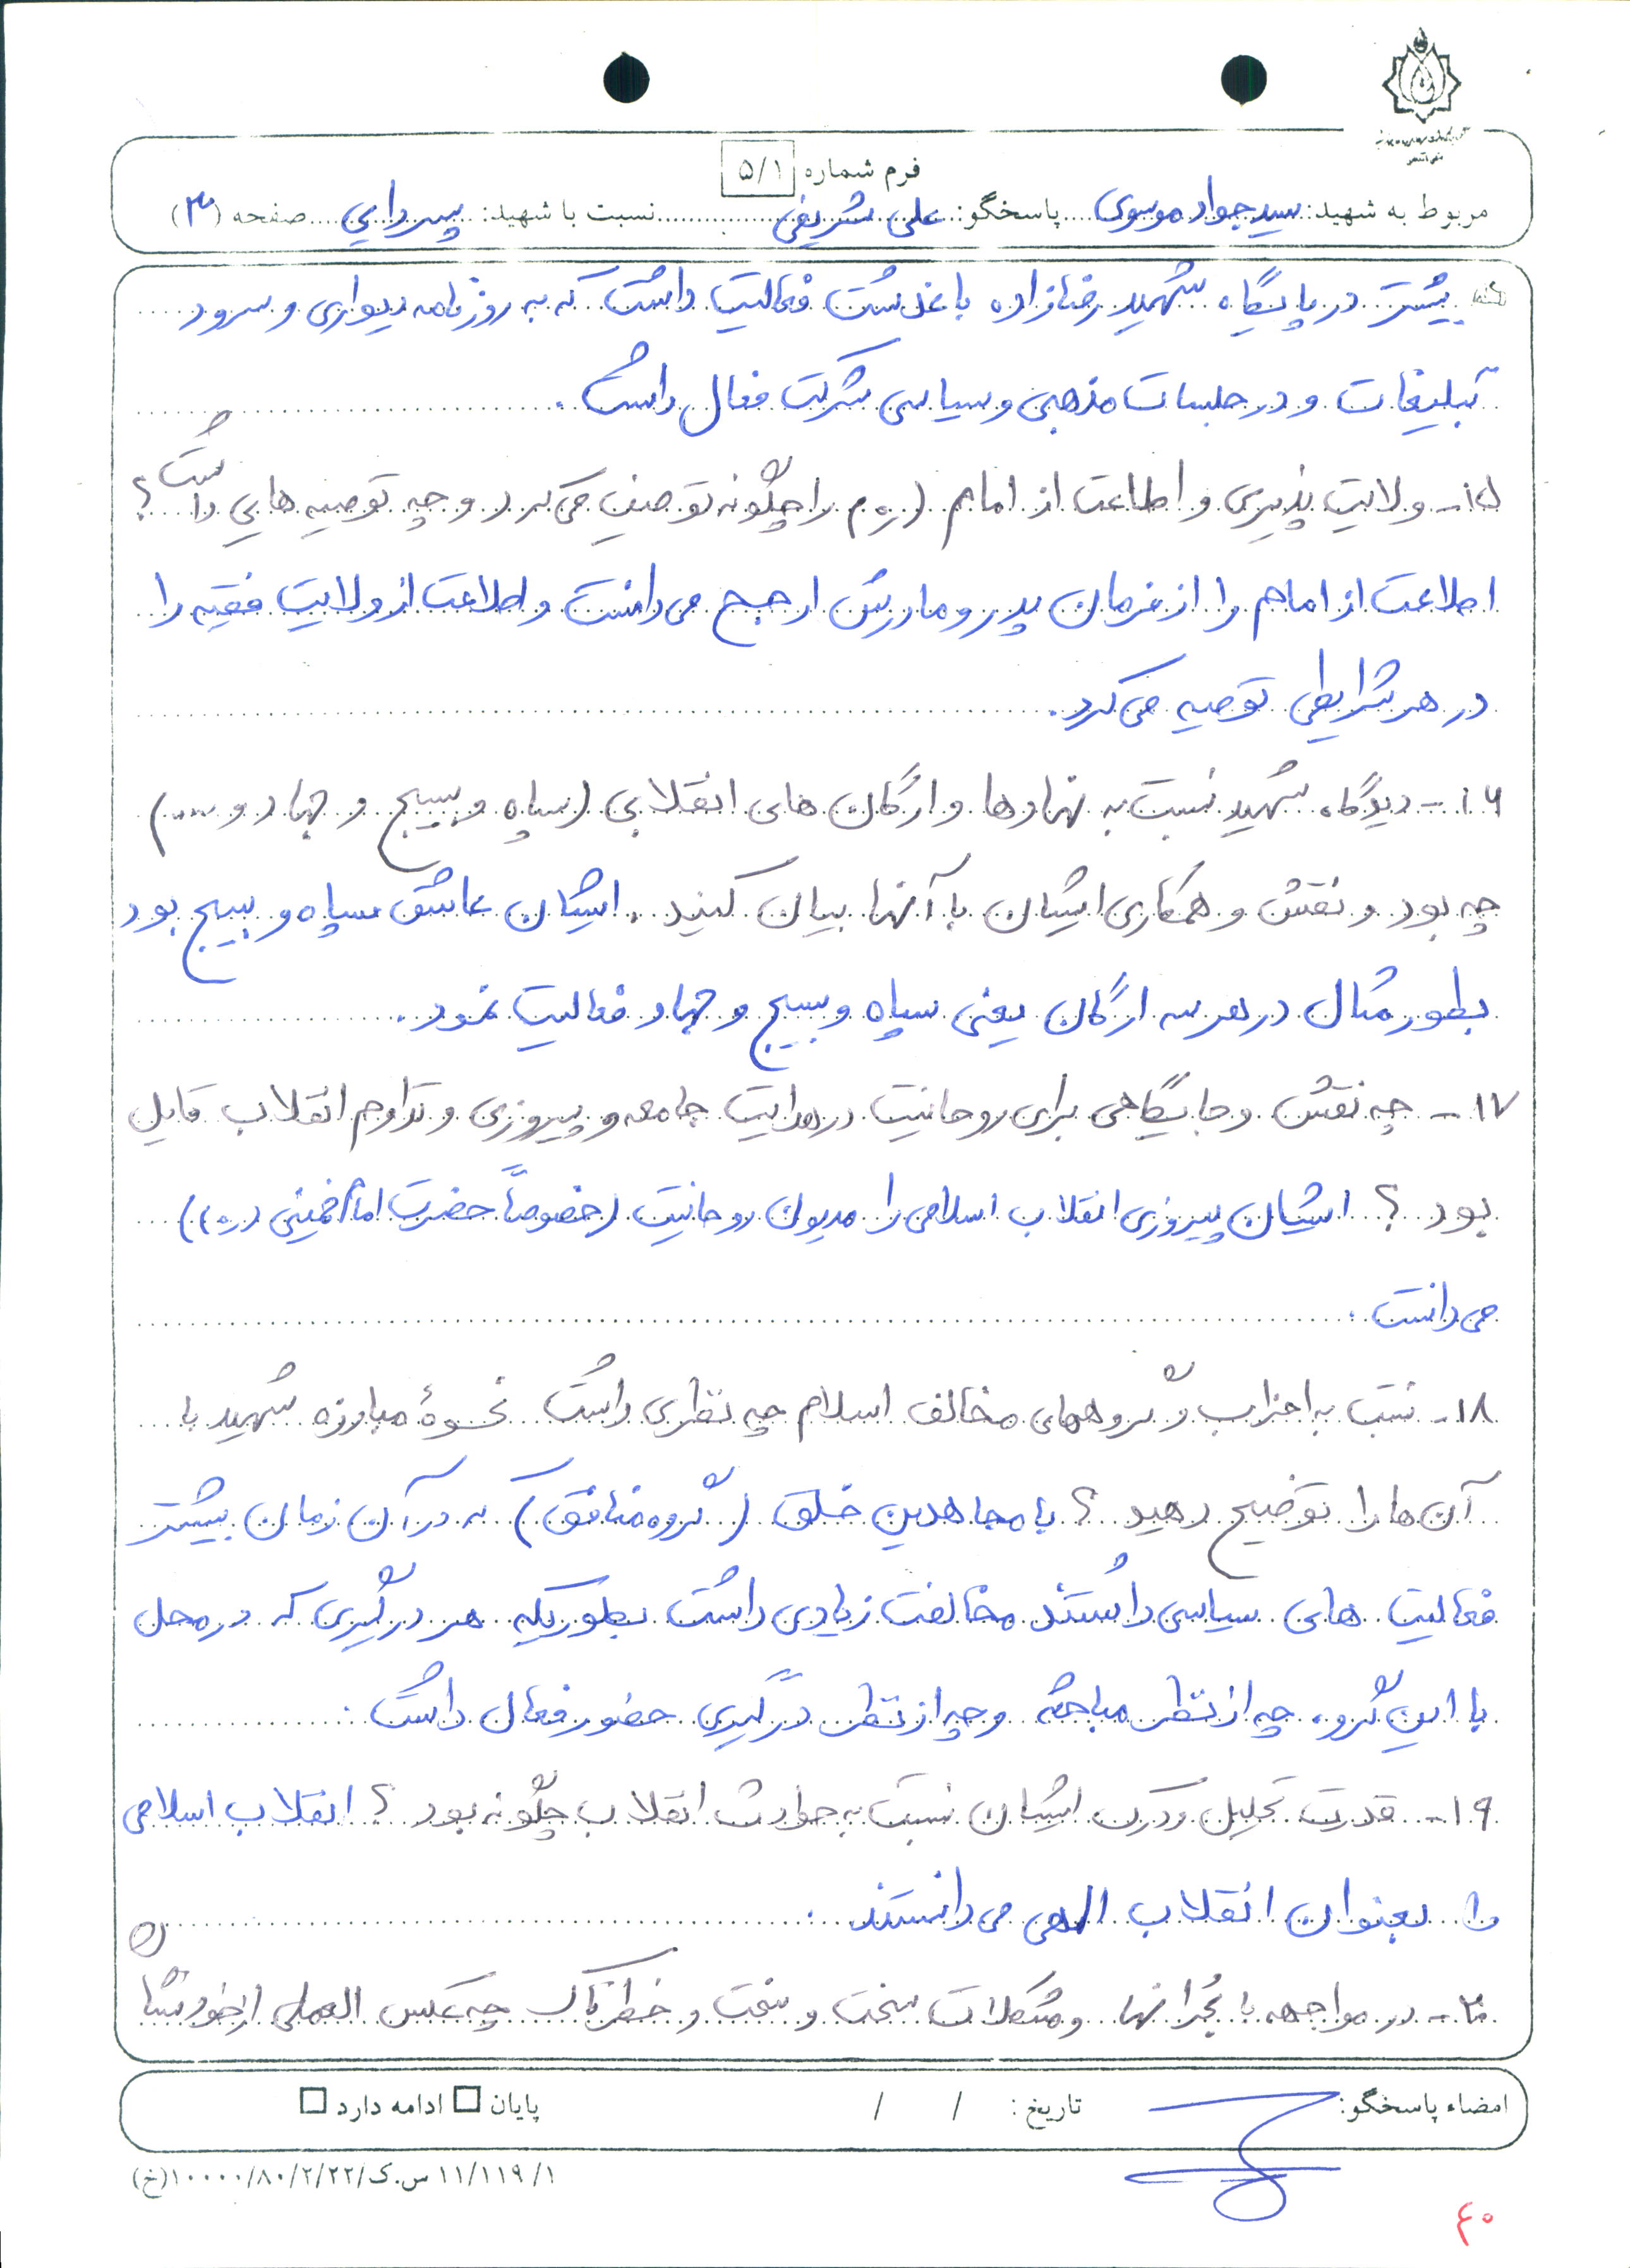 فرم شماره ۵/۱
مربوط به شهید: سید جواد موسوی پاسخگو: علی شریفی نسبت با شهید: پسر دایی صفحه (۳)
بیشتر در پایگاه شهید رضازاده باغدشت فعالیت داشت که به روزنامه دیواری و سرود
تبلیغات و در جلسات مذهبی و سیاسی شرکت فعال داشت.
۱۵- ولایت پذیری و اطاعت از امام (ره) را چگونه توصیف می کرد و چه توصیه هایی داشت؟
اطاعت از امام را از فرمان پدر و مادرش ارجح می دانست و اطاعت از ولایت فقیه را
در هر شرایطی توصیه می کرد.
۱۶- دیدگاه شهید نسبت به نهادها و ارگان های انقلابی (سپاه و بسیج و جهاد و ....)
چه بود و نقش و همکاری ایشان با آنها بیان کنید. ایشان عاشق سپاه و بسیج بود
بطور مثال در هر سه ارگان یعنی سپاه و بسیج و جهاد فعالیت نمود.
۱۷- چه نقش و جایگاهی برای روحانیت در هدایت جامعه و پیروزی و تداوم انقلاب قایل
بود؟ ایشان پیروزی انقلاب اسلامی را مدیون روحانیت (خصوصاً حضرت امام خمینی (ره))
می دانست.
۱۸- نسبت به احزاب و گروههای مخالف اسلام چه نظری داشت نحوۀ مبارزه شهید با
آن ها را توضیح دهید؟ با مجاهدین خلق (گروه منافق) که در آن زمان بیشتر
فعالیت های سیاسی داشتند مخالفت زیادی داشت بطوریکه هر درگیری که در محل
با این گروه چه از نظر مباحثه و چه از نظر درگیری حضور فعال داشت.
۱۹- قدرت تحلیل و درک ایشان نسبت به حوادث انقلاب چگونه بود؟ انقلاب اسلامی
را بعنوان انقلاب الهی می دانستند.
۲۰- در مواجهه با بحرانها و مشکلات سخت و سخت و خطرناک چه عکس العملی از خود نشان
امضاء پاسخگو: تاریخ: / / پایان □ ادامه دارد □
۱۱/۱۱۹/۱ س.ک/۱۰۰۰۰/۸۰/۲/۲۲(خ)
۴۰